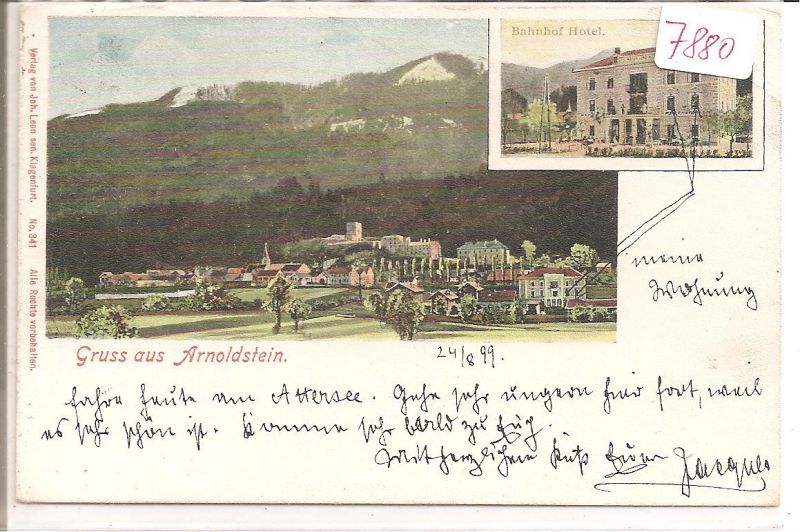 7880
Bahnhof Hotel.
Verlag von Joh. Leon sen. Klagenfurt. No. 341 Alle Rechte vorbehalten.
meine
Wohnung
Gruss aus Arnoldstein.
24/8 99.
fahre heute am Attersee. Gehe sehr ungern hier fort, weil
es sehr schön ist. Komme sehr bald zu Euch.
Mit herzlichem Kuß Euer Jacques